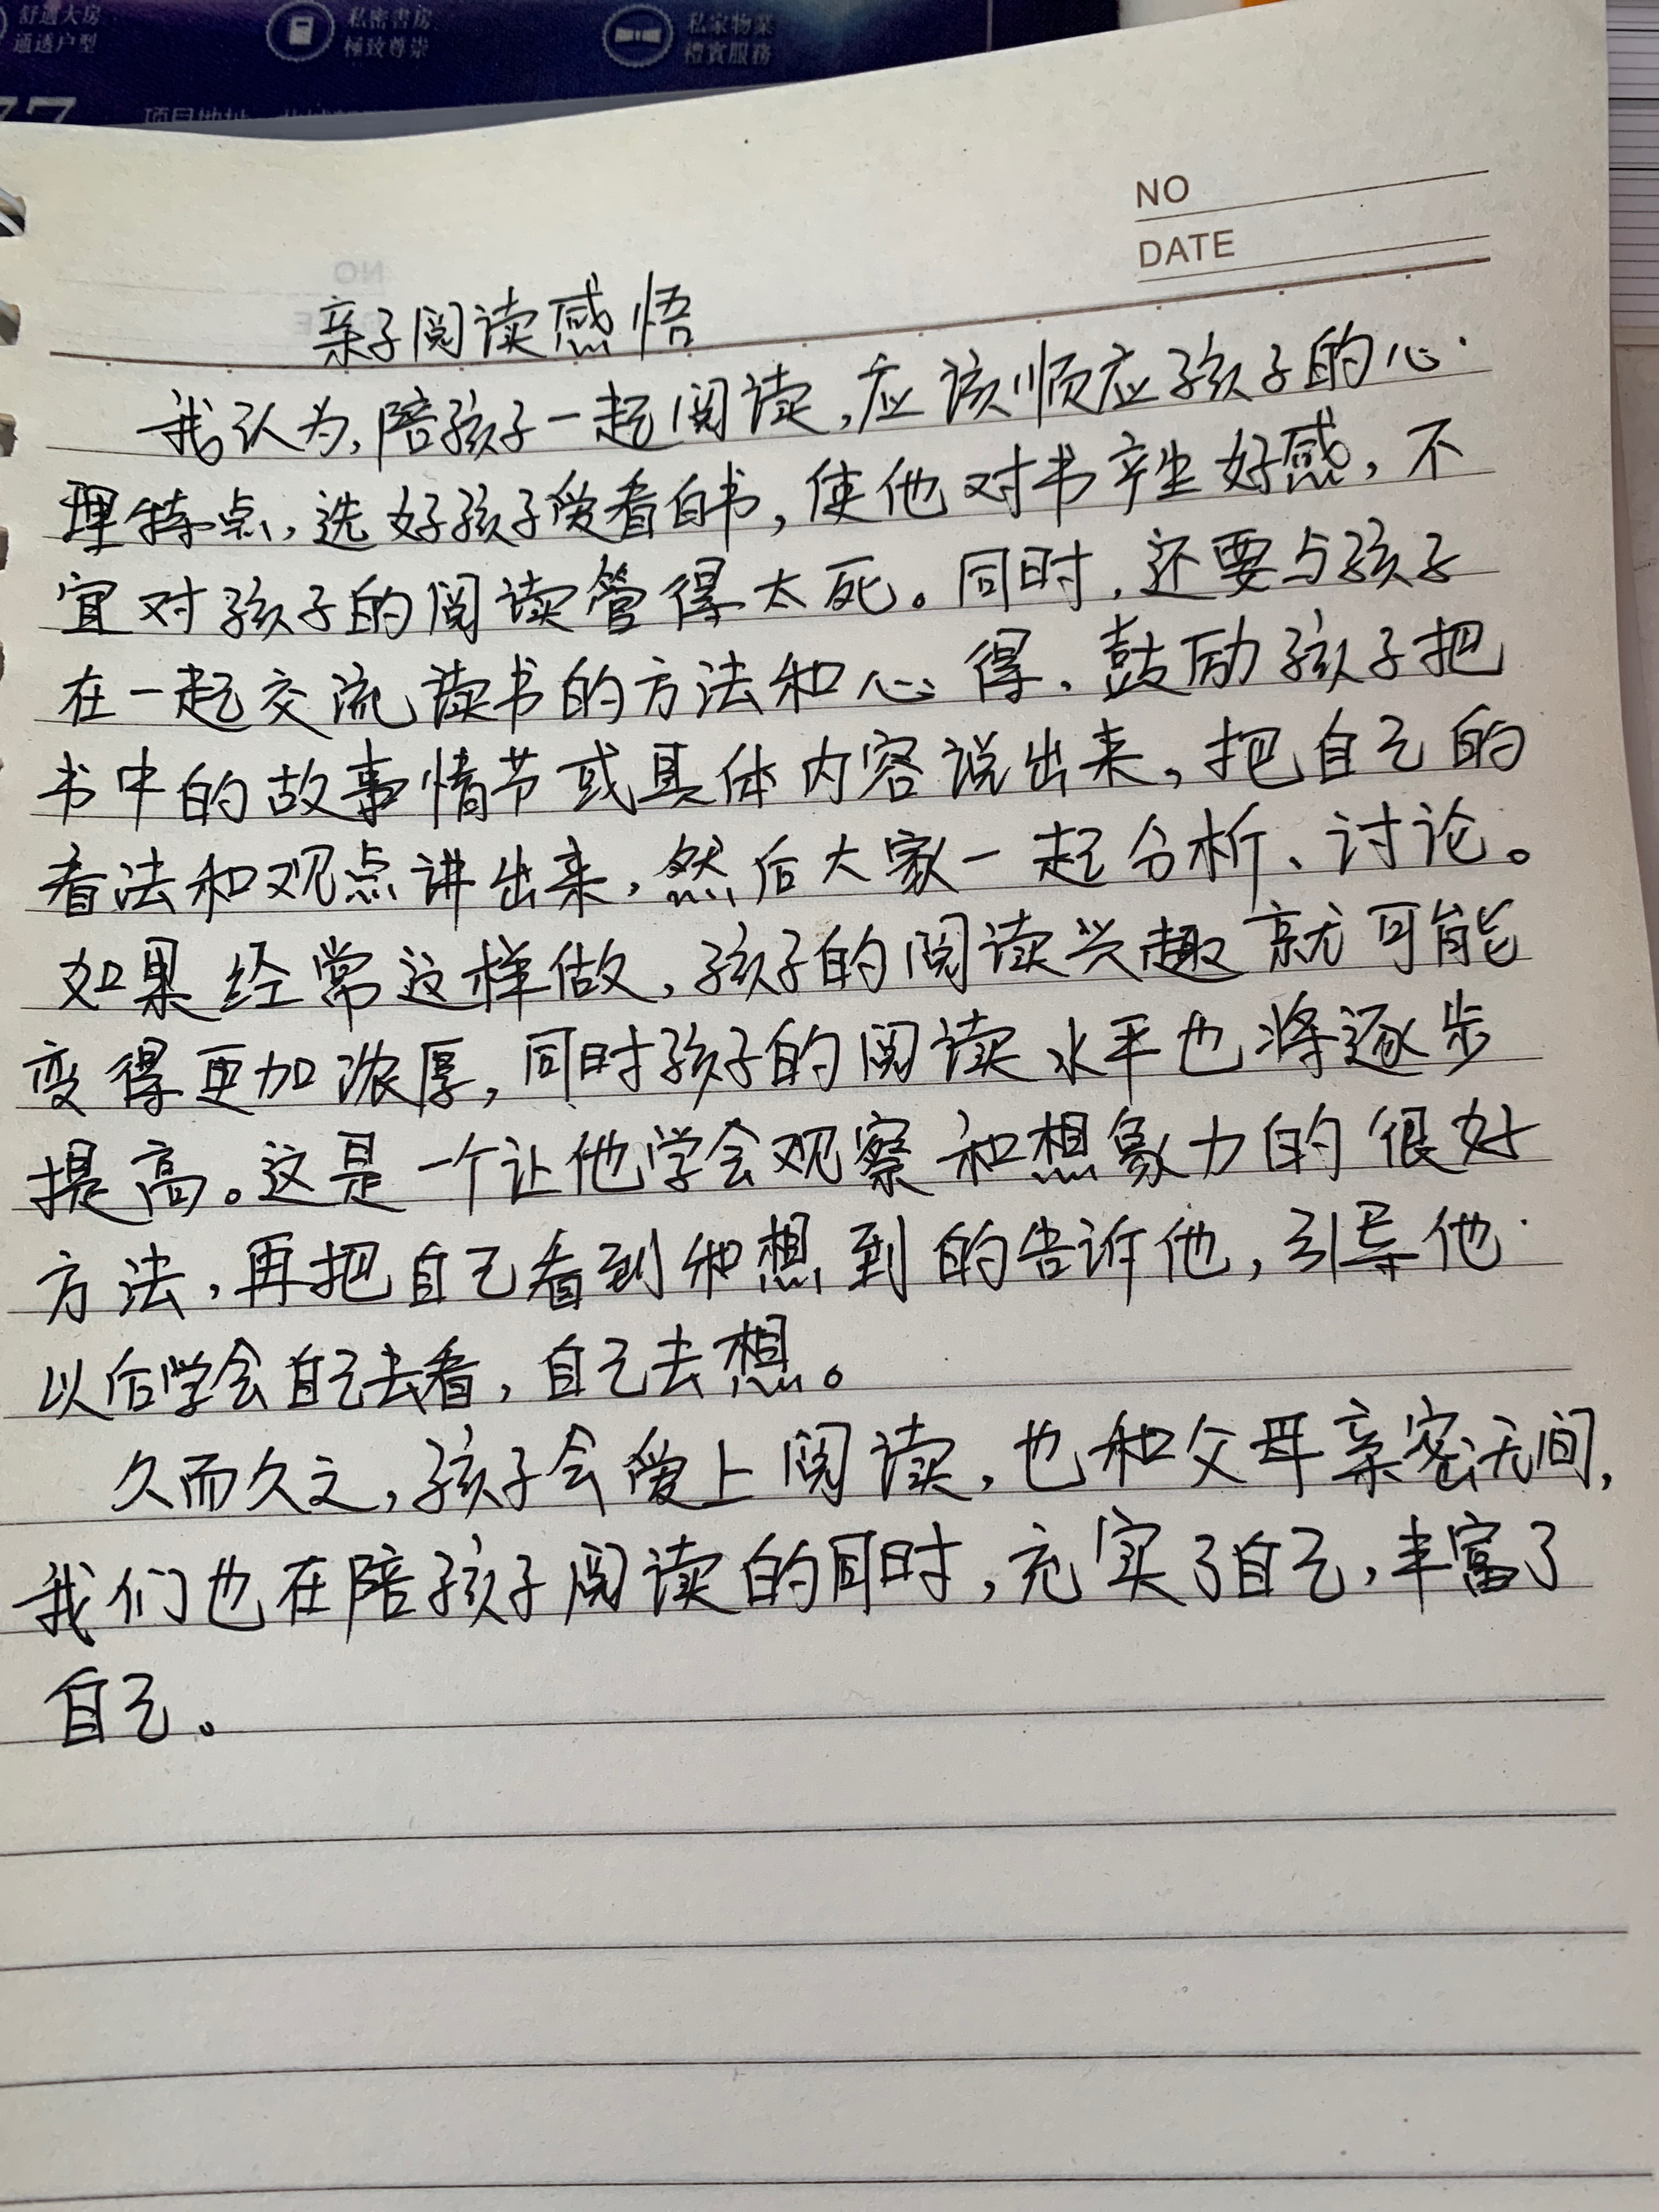 舒適大房
通透户型
私密書房
極致尊崇
私家物業
禮賓服務
77
NO
DATE
亲子阅读感悟
我认为,陪孩子一起阅读,应该顺应孩子的心
理特点,选好孩子爱看自书,使他对书产生好感,不
宜对孩子的阅读管得太死。同时,还要与孩子
在一起交流读书的方法和心得、鼓励孩子把
书中的故事情节或具体内容说出来,把自己的
看法和观点讲出来,然后大家一起分析、讨论。
如果经常这样做,孩子的阅读兴趣就可能
变得更加浓厚,同时孩子的阅读水平也将逐步
提高。这是一个让他学会观察和想象力的很好
方法,再把自己看到和想到的告诉他,引导他
以后学会自己去看,自己去想。
久而久之,孩子会爱上阅读,也和父母亲密无间,
我们也在陪孩子阅读的同时,充实了自己,丰富了
自己。